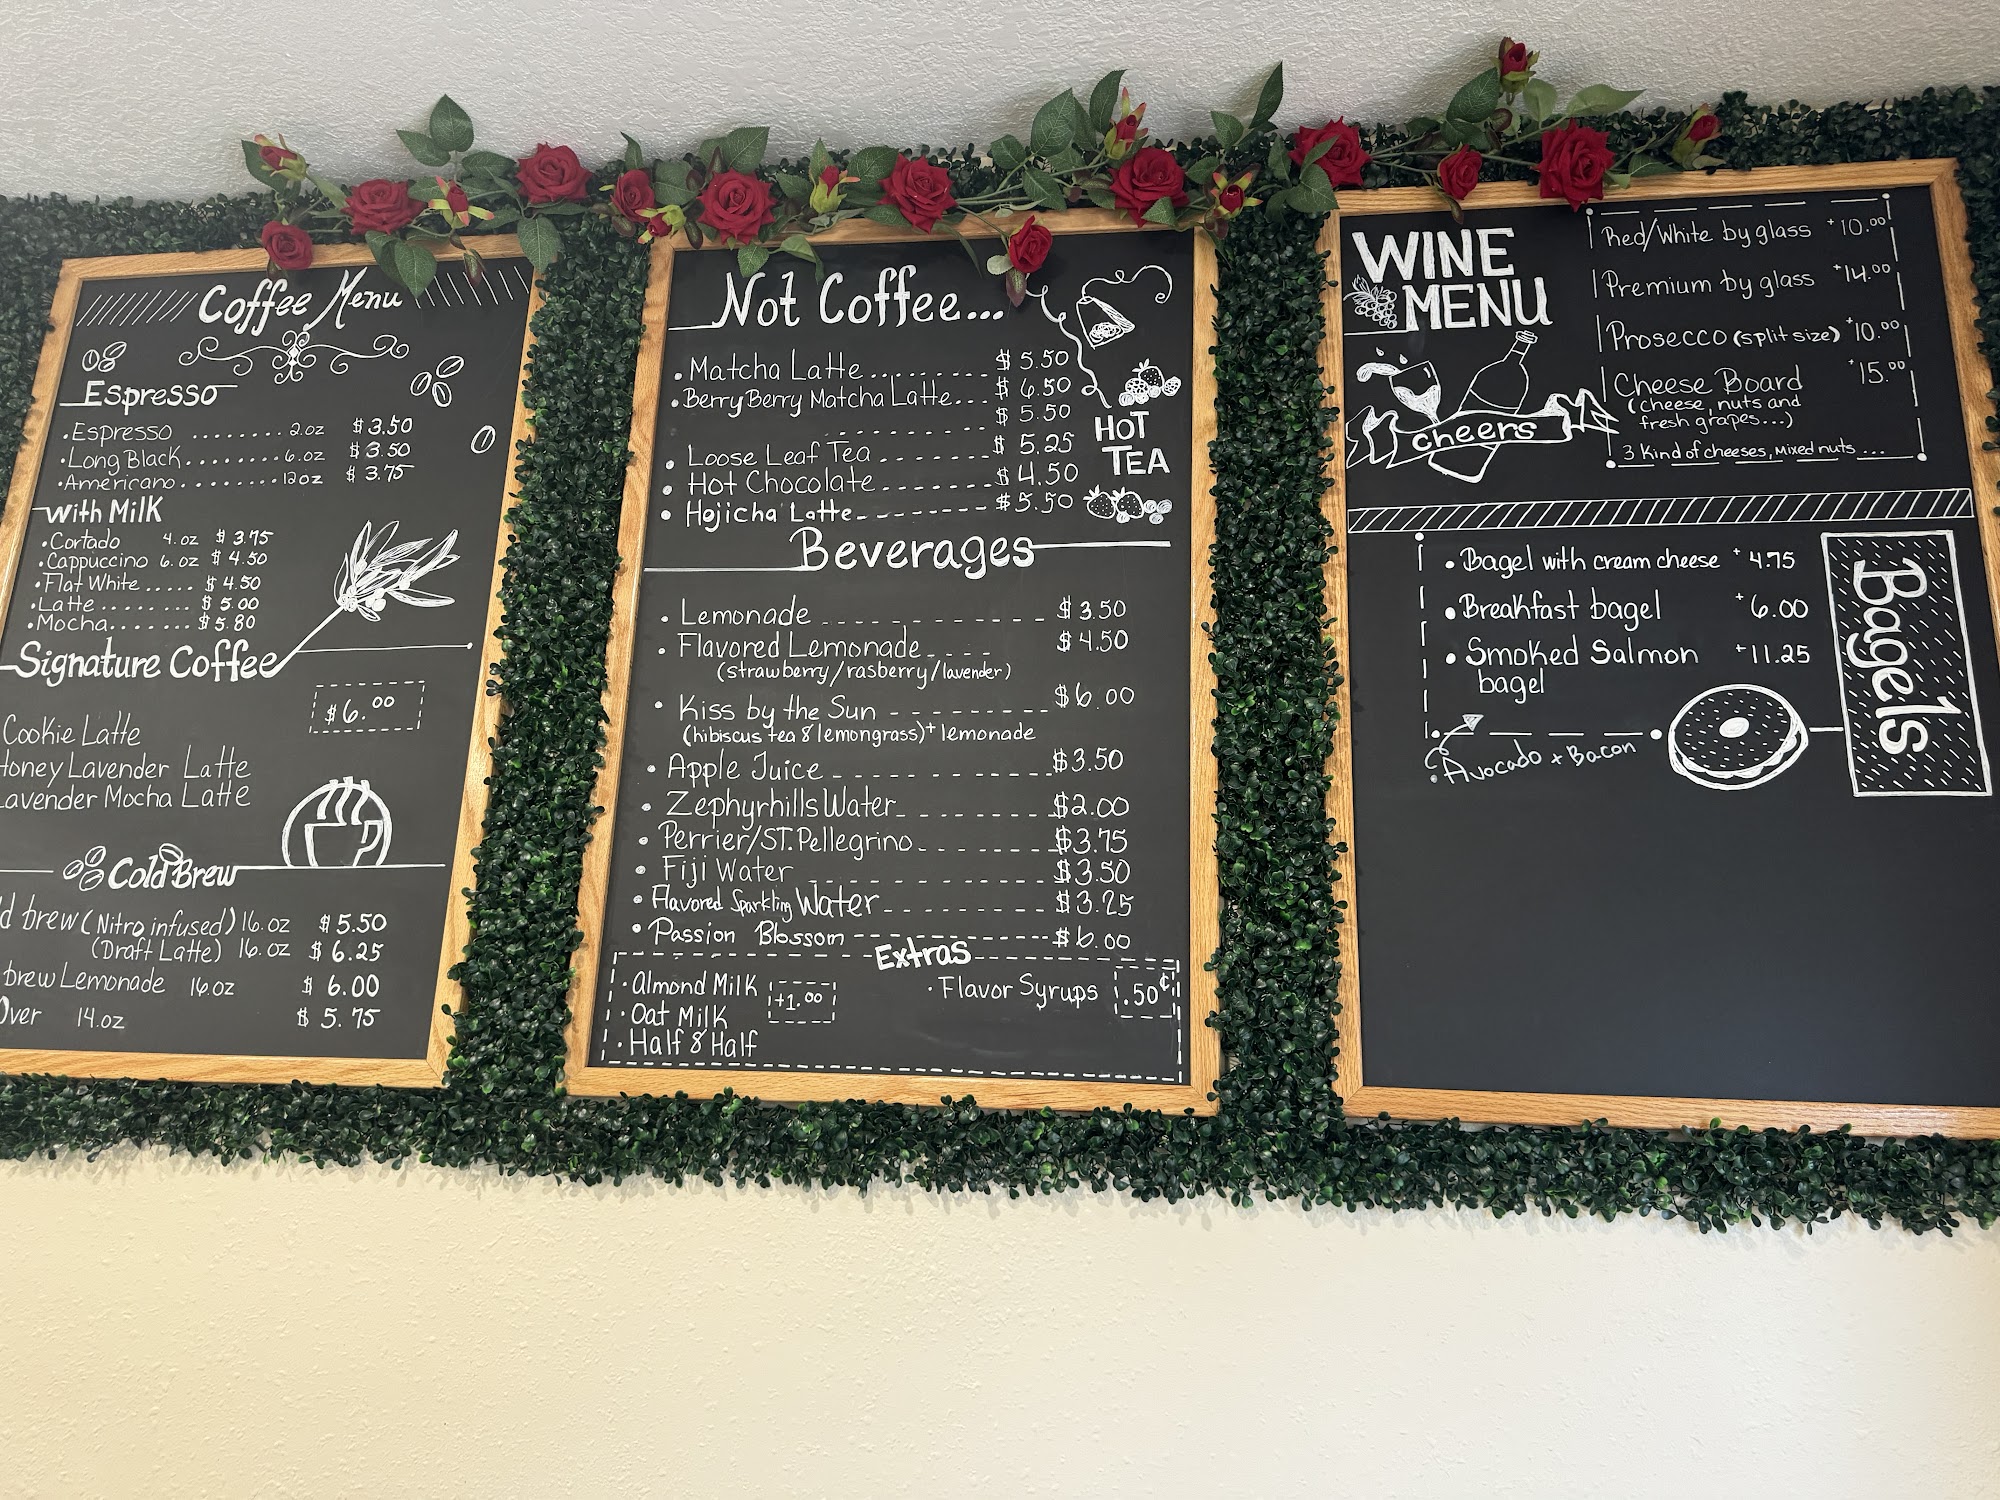 Coffee Menu
Espresso
• Espresso ........ 2oz $3.50
• Long Black ........ 6.oz $3.50
• Americano ......... 12oz $3.75
with Milk
• Cortado 4.oz $3.75
• Cappuccino 6.oz $4.50
• Flat White ..... $4.50
• Latte ........ $5.00
• Mocha ....... $5.80
Signature Coffee
$6.00
Cookie Latte
Honey Lavender Latte
Lavender Mocha Latte
Cold Brew
d brew (Nitro infused) 16.oz $5.50
(Draft Latte) 16.oz $6.25
brew Lemonade 16.oz $6.00
Over 14.oz $5.75
Not Coffee...
• Matcha Latte ......... $5.50
• Berry Berry Matcha Latte... $6.50
- - - - - - - - $5.50
• Loose Leaf Tea ........ $5.25
• Hot Chocolate ....... $4.50
• Hojicha Latte - - - - - - - $5.50
HOT
TEA
Beverages
• Lemonade - - - - - - - - - - - - $3.50
• Flavored Lemonade - - - - $4.50
(strawberry/rasberry/lavender)
• Kiss by the Sun - - - - - - - - $6.00
(hibiscus tea & lemongrass)+ lemonade
• Apple Juice - - - - - - - - - - - $3.50
• Zephyrhills Water - - - - - - - - $2.00
• Perrier/ST. Pellegrino - - - - - - - $3.75
• Fiji Water - - - - - - - - - - - - $3.50
• Flavored Sparkling Water - - - - - - - - $3.25
• Passion Blossom - - - - - - - - - - $6.00
Extras
• Almond Milk +1.00
• Oat Milk
• Half & Half
• Flavor Syrups .50¢
WINE
MENU
cheers
Red/White by glass +10.00
Premium by glass +14.00
Prosecco (split size) +10.00
Cheese Board +15.00
(cheese, nuts and
fresh grapes...)
3 Kind of cheeses, Mixed nuts ...
• Bagel with cream cheese +4.75
• Breakfast bagel +6.00
• Smoked Salmon +11.25
bagel
• Avocado + Bacon
Bagels